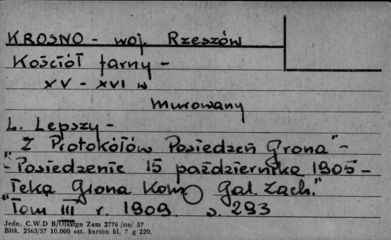 KROSNO - woj. Rzeszów
Kościół farny -
XV - XVI w
murowany
L. Lepszy -
"Z Protokółów Posiedzeń Grona" -
"Posiedzenie 15 października 1905 -
Teka Grona Kom. Gal. Zach."
"Tom III r. 1909 s. 293
Jedn. C.W.D B/Olsztyn Zam 2776 /on/ 57
Bltk. 2563/57 10.000 szt. karton kl. 7 g 220.